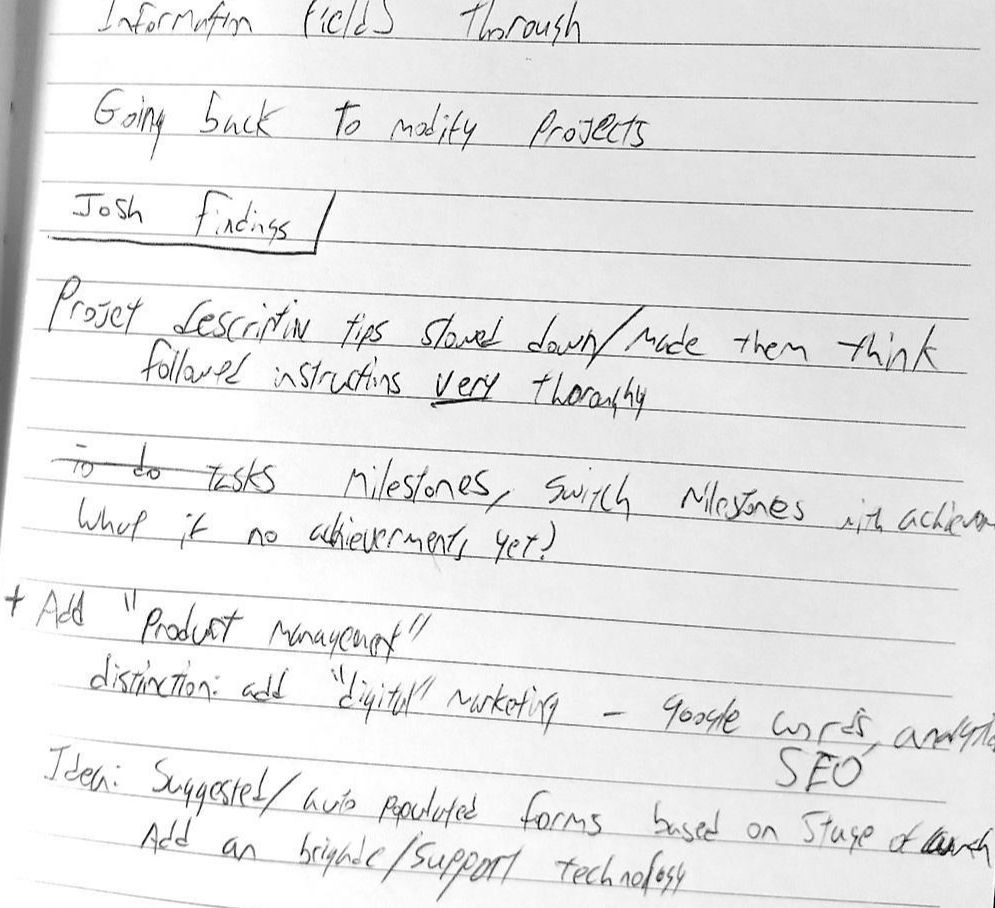 Information fields thorough
Going back to modify projects
Josh findings
Projet description tips slowed down/made them think
followed instructions very thoroughly
To do tasks milestones, switch milestones with achievem
What if no achievements yet?
+ Add "Product management"
distinction: add "digital" marketing – google words, analytic
SEO
Idea: Suggested/auto populated forms based on stage of launch
Add an /support technology